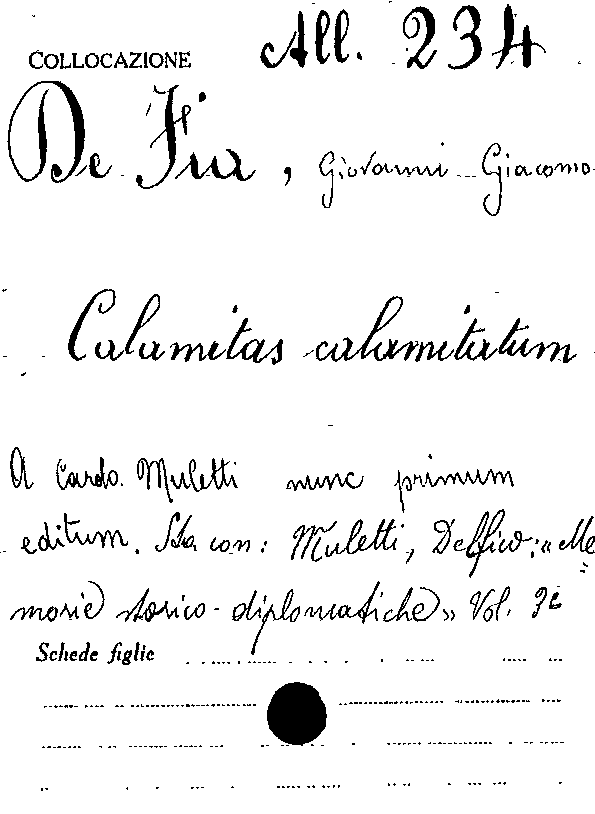 COLLOCAZIONE All. 234
De Fia, Giovanni Giacomo
Calamitas calamitatum
A Carolo Muletti nunc primum
editum. Sta con: Muletti, Delfico: «Me
morie storico-diplomatiche» Vol.
Schede figlie